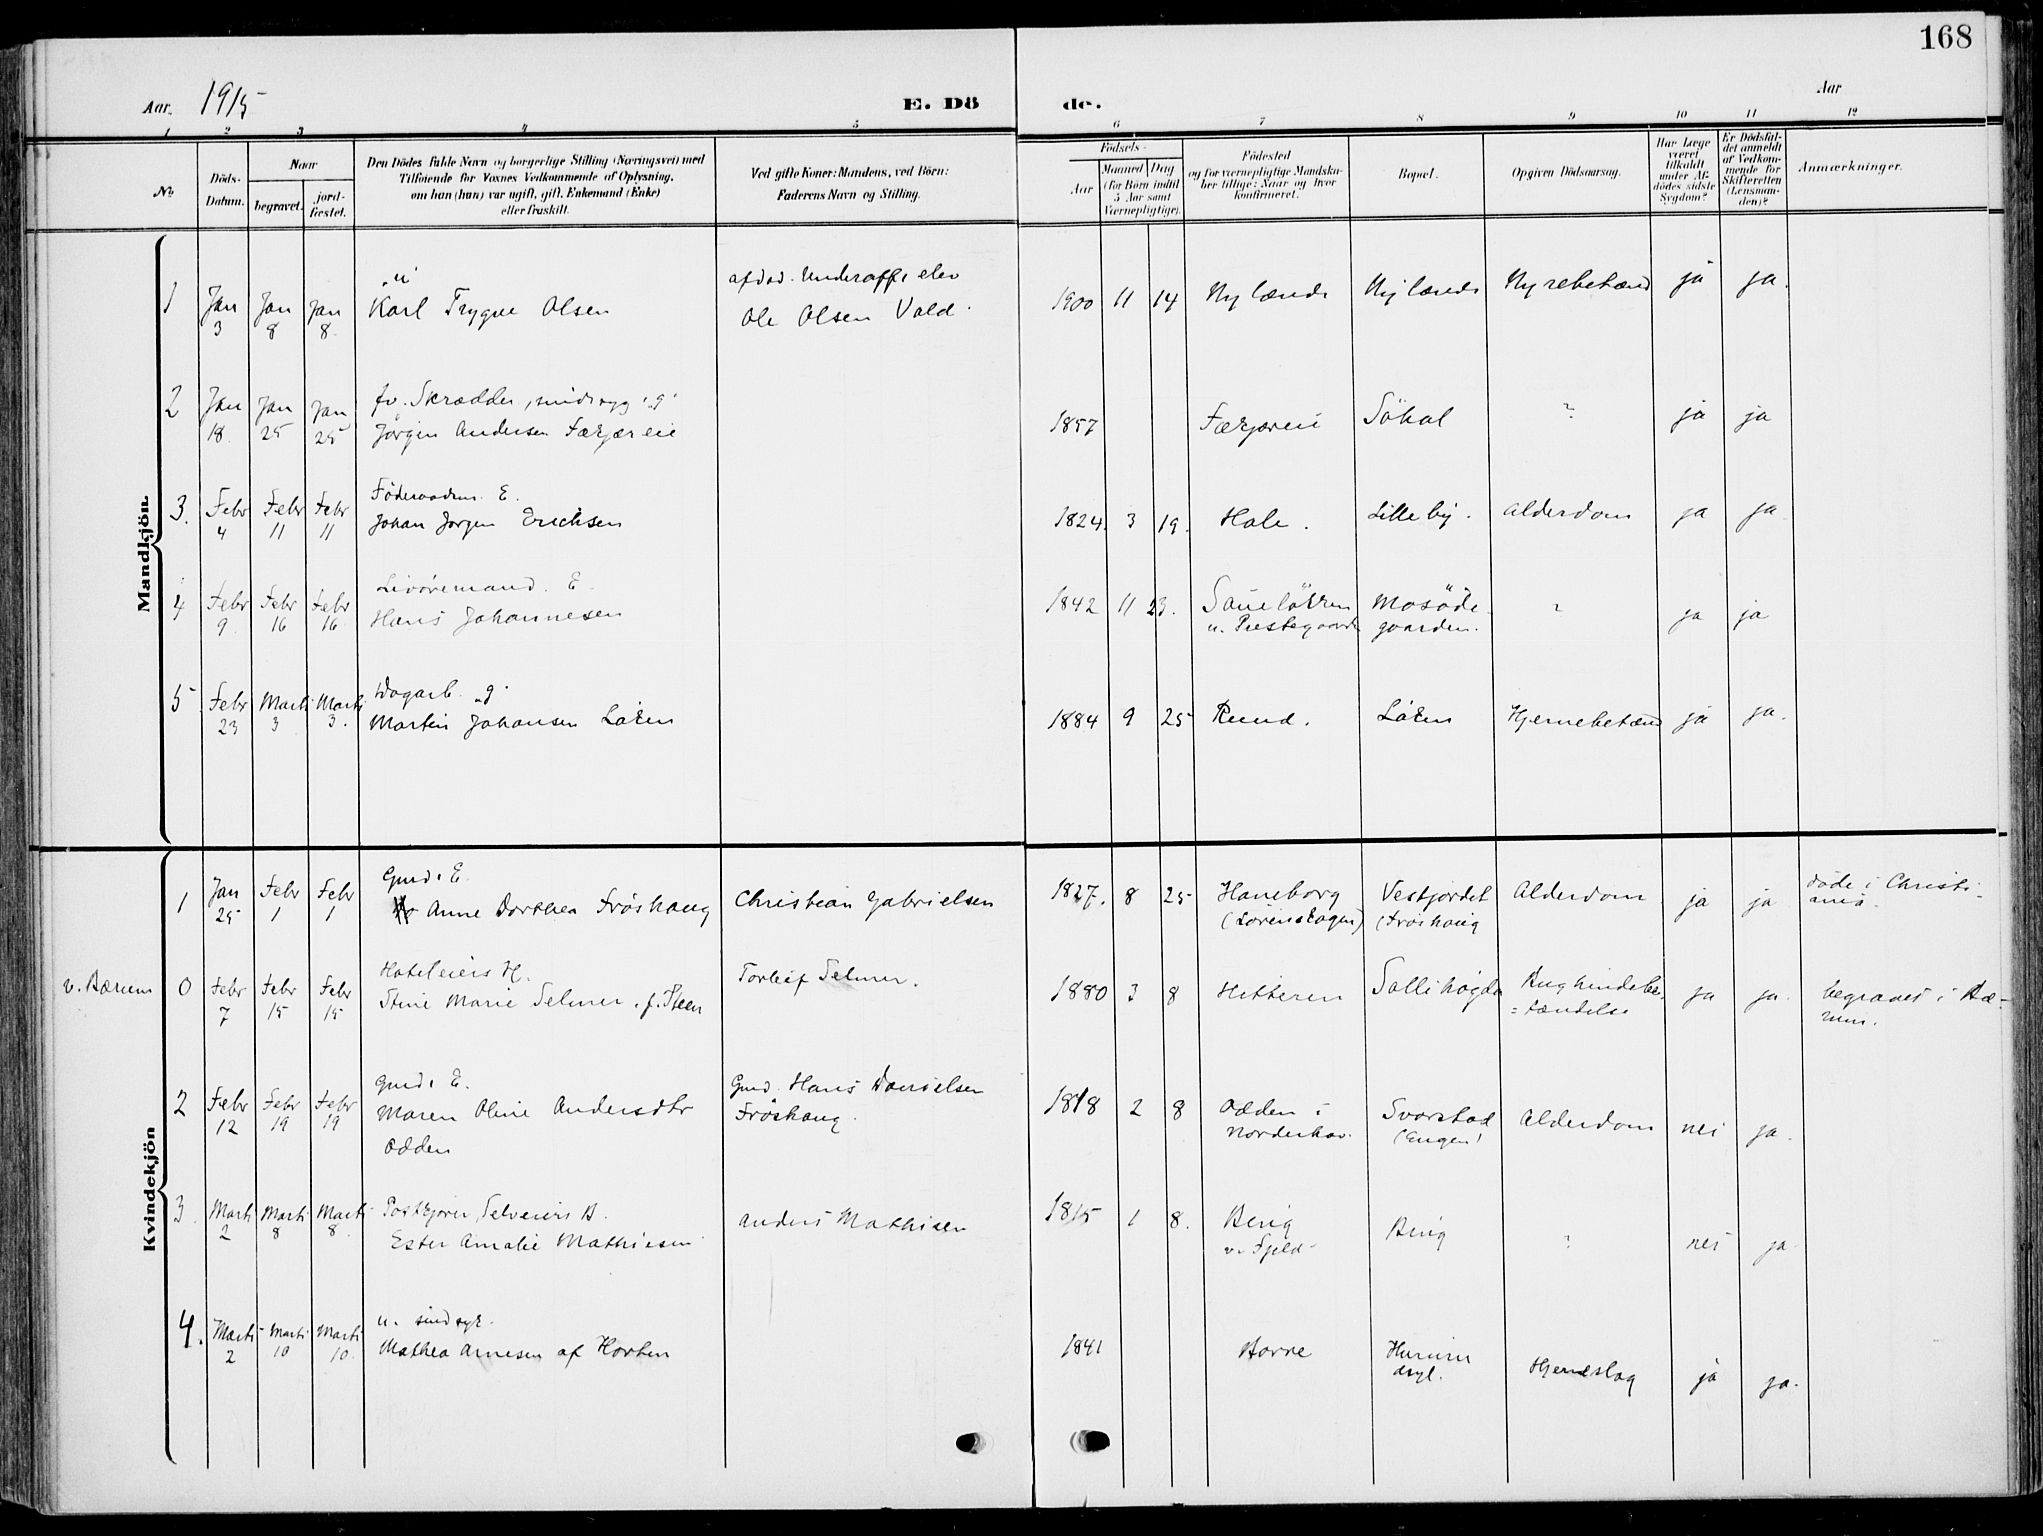 168
Aar 1915 E. Dö de. Aar
1 2 3 4 5 6 7 8 9 10 11 12
No
Döds-Datum.
Naar
begravet. jord-fæstet.
Den Dödes fulde Navn og borgerlige Stilling (Næringsvei) med
Tilföiende for Voxnes Vedkommende af Oplysning,
om han (hun) var ugift, gift, Enkemand (Enke)
eller fraskilt.
Ved gifte Koner: Mandens, ved Börn:
Faderens Navn og Stilling.
Födsels-
Aar Maaned Dag
(for Börn indtil
5 Aar samt
Værnepligtige).
Födested
og for værnepligtige Mandska-
ber tillige: Naar og hvor
konfirmeret.
Bopæl.
Opgiven Dödsaarsag.
Har Læge
været
tilkaldt
under Af-
dödes sidste
Sygdom?
Er Dödsfal-
det anmeldt
af Vedkom-
mende for
Skifteretten
(Lensman-
den)?
Anmærkninger.
Mandkjön.
1 Jan 3 Jan 8 Jan 8 "u"
Karl Trygve Olsen
afdød.
Ole Olsen Vald.
1900 11 14 Nylænde Nylænde Nyrebetænd ja ja.
2 Jan 18. Jan 25 Jan 25 fv. Skrædder, sindssyg, "g"
Jörgen Andersen Færjøreie
1857 Færjøreie Søhol ? ja ja
3. Febr 4 Febr 11 Febr 11 Föderaadsm. E.
Johan Jørgen Erichsen
1824. 3 19. Hole. Lilleby. Alderdom ja ja
4 Febr 9. Febr 16 Febr 16 Livöremand. E.
Hans Johannesen
1842 11 23. Saueløkken
u. Prestegaarden
Mosöde-
gaarden.
? ja ja
5 Febr 23 Marts 3 Marts 3. Dagarb. "g"
Martin Johansen Løken
1884 9 25 Rund. Løken Hjernebetænd ja ja.
Kvindekjön
1 Jan 25 Febr 1 Febr 1 Gmd. E.
Anne Dorthea Frøshaug
Christian Gabrielsen
1827. 8 25 Haneborg
(Lørenskogen)
Vestjordet
(Frøshaug
Alderdom ja ja døde i Christi-
ania.
v. Bærum 0 Febr 7 Febr 15 Febr 15 Hoteleiers H.
Stine Marie Selmer, f. Steen
Torleif Selmer.
1880 3 8 Hitteren Sollihøgda Bughindebe-
=tændelse
ja ja. begravet i Bæ-
rum.
2 Febr 12 Febr 19 Febr 19 Gmd. E.
Maren Oline Andersdtr
Odden
Gmd. Hans Danielsen
Frøshaug.
1818 2 8 Odden i
Norderhov.
Svarstad
(Engen)
Alderdom nei ja.
3. Marts 2 Marts 8 Marts 8. Selveiers B.
Ester Amalie Mathiesen
Anders Mathisen
1815 1 8. Berig
v. Fjeld-
Berig ? nei ja.
4. Marts 2 Marts 10 Marts 10. u. sindsyk.
Mathea Arnesen af Horten
1841 Borre Hurum
asyl.
Hjerneslag ja ja.